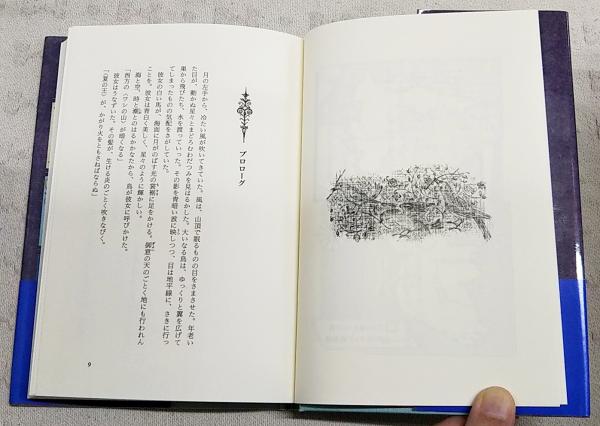 プロローグ
月の左手から、冷たい風が吹いてきていた。風は、山頂で眠るものの目をさまさせた。年老い
た目が、動かぬ星々とまどろむわだつみを見はるかした。大いなる鳥は、ゆっくりと翼を広げて
巣から飛びたち、水を渡っていった。その影を青暗い波に映しつつ、目は地平線に、さきに行っ
てしまったものの気配をさがしていた。
彼女の白い馬が、海面に月がのばす光の裳裾に足をかける。御意の天のごとく地にも行われん
ことを。彼女は青白く美しく、星々のように輝かしい。
海と空、時と潮とのはるかなたから、鳥が彼女に呼びかけた。
「西方の〈ワシの山〉が暗くなる」
彼女はうなずいた。その髪が、生ける炎のごとく吹きなびく。
「〈夏の王〉が、かがり火をともさねばならぬ」
9